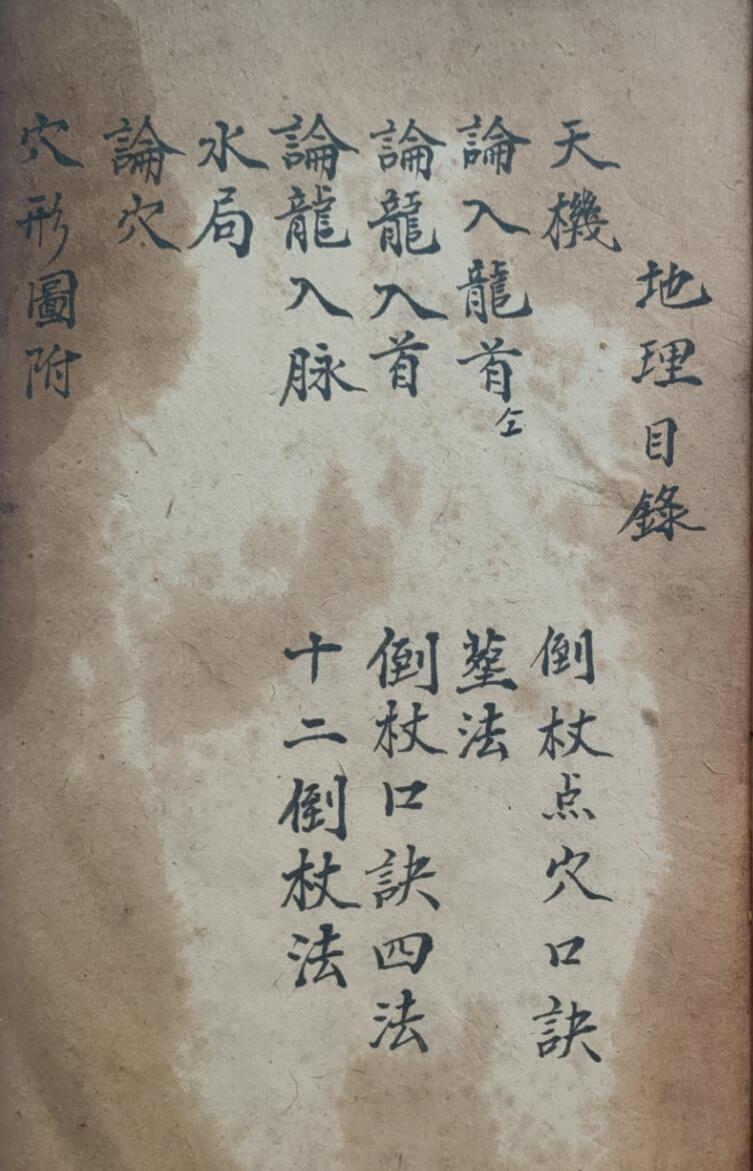 地理目錄
天機
論入龍首仝
論龍入首
論龍入脉
水局
論穴
穴形圖附
倒杖点穴口訣
塟法
倒杖口訣四法
十二倒杖法